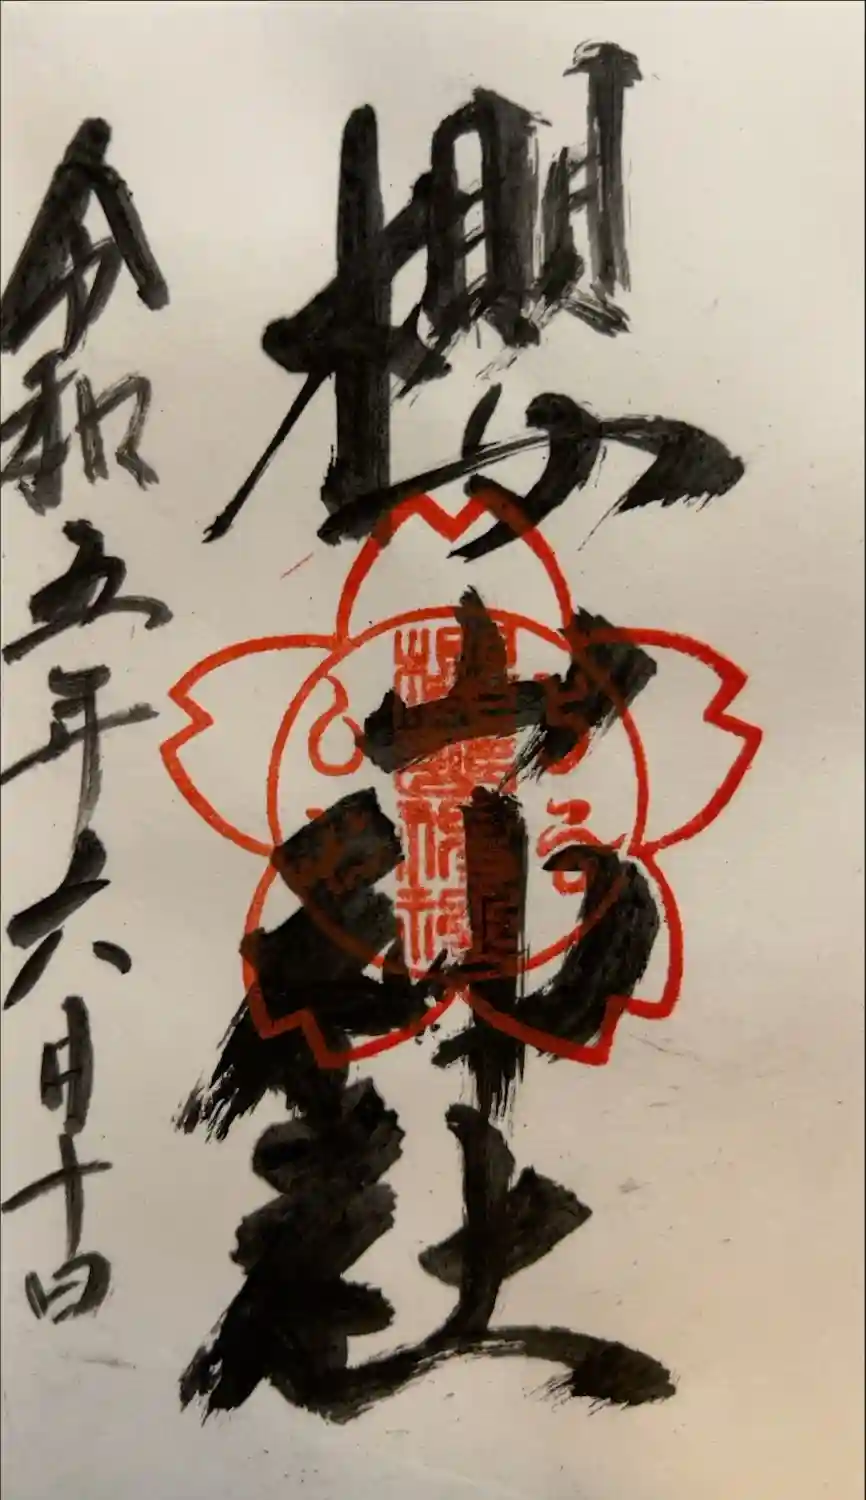 櫻山神社
令和五年六月十日